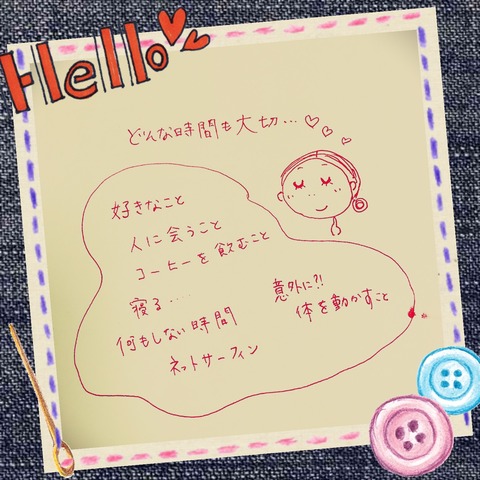 Hello
どんな時間も大切…
好きなこと
人に会うこと
コーヒーを飲むこと
寝る・・・・・
何もしない時間
ネットサーフィン
意外に?!
体を動かすこと